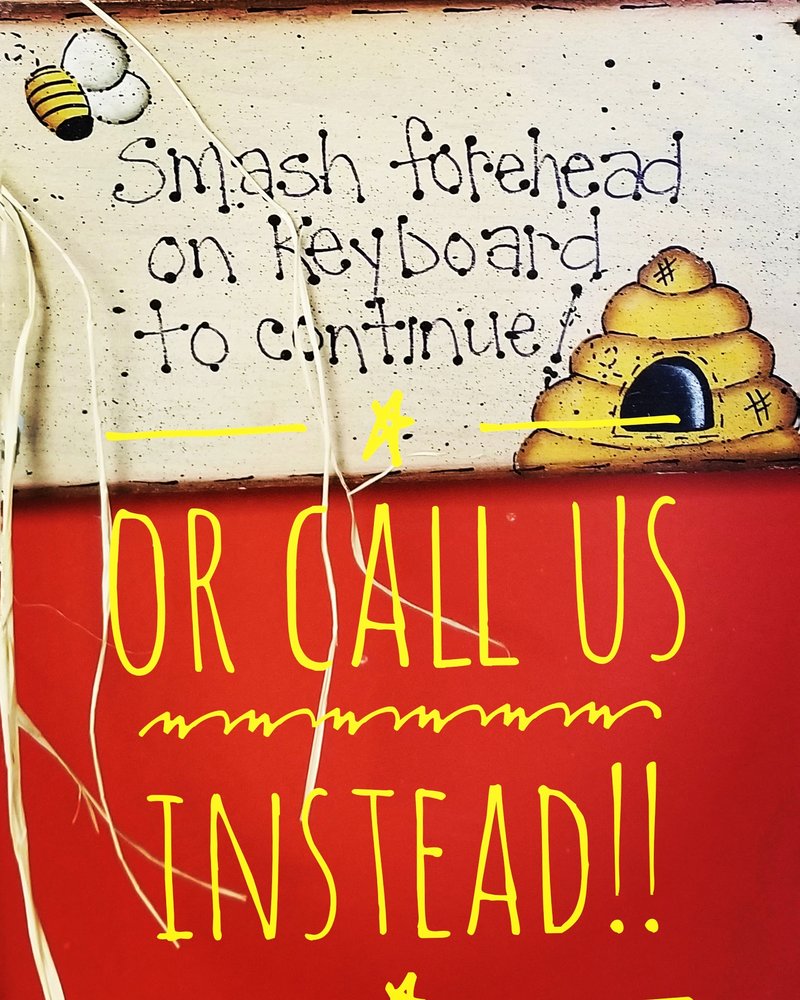 Smash forehead
on keyboard
to continue!
OR CALL US
INSTEAD!!